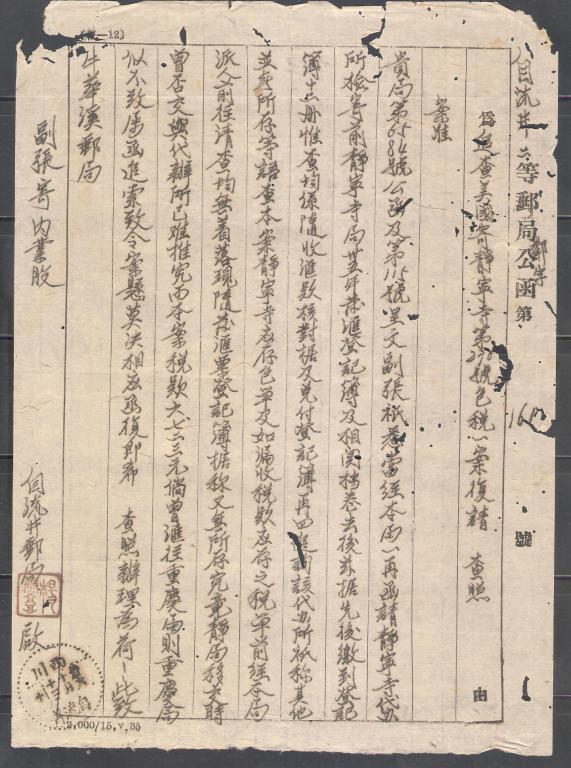 —12]
自流井二等郵局公函 第 16 號
郵字
為 查美國寄靜寧寺第 號包稅一案復請 查照 由
案准
貴局第6584號公函及第115號呈文副張祇悉當經本局一再函請靜寧寺代办
所檢寄前靜寧寺局卅五年 滙登記簿及相関档卷去後茲据先後繳到登記
簿十六册惟查均係隨收滙款核對据及兌付登記簿再四 該代办所祇称其他
並無所存等語查本案靜寧寺应存包單及如漏收税款应存之税單前經本局
派人前往清查均無着落現隨 滙票登記簿据称又無所存究竟靜局移交時
曾否交與代辦所已难推究而本案税款六七二三元倘曾滙往重慶局則重慶局
似不致屡函追索致令案懸莫決相应函復即希 查照辦理為荷 此致
牛華溪郵局
副張寄内業股
自流井郵局 啟
四川
2,000/15.v.35